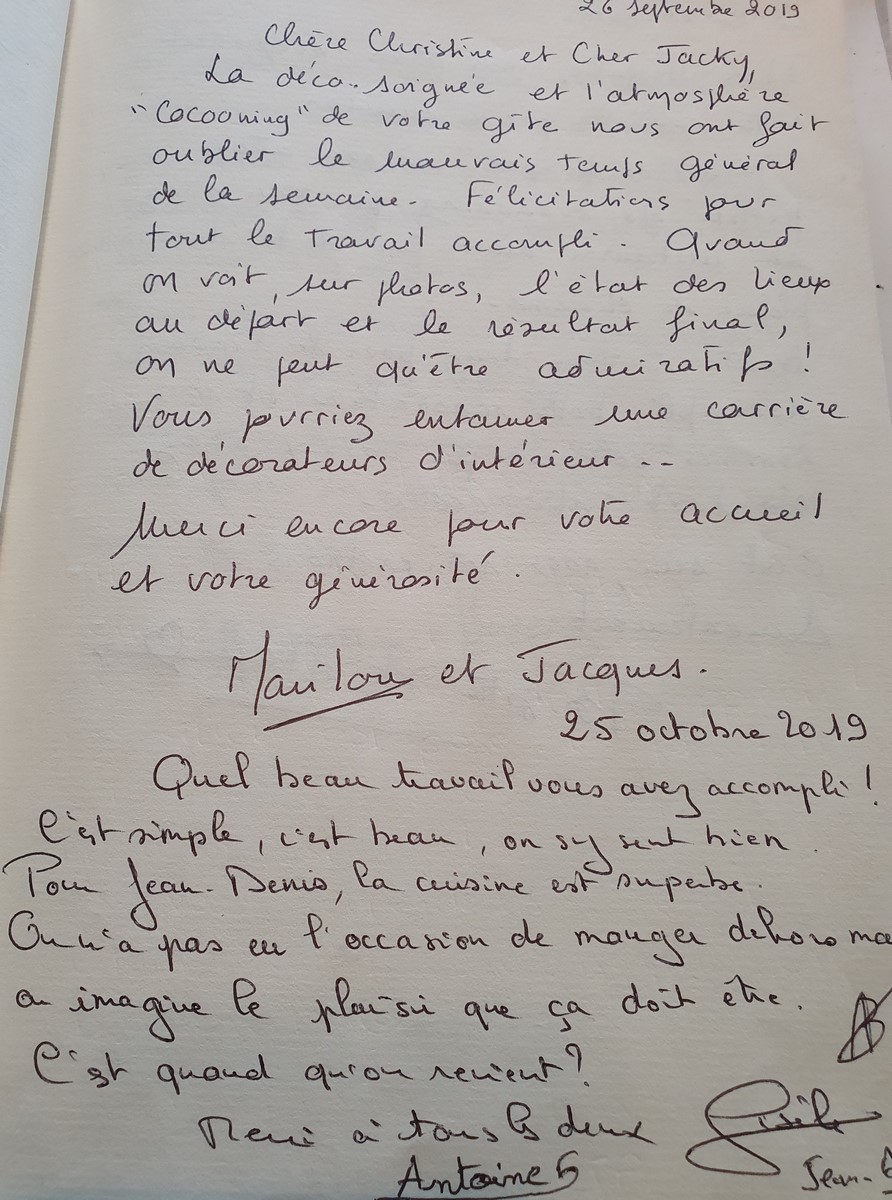 26 septembre 2019
Chère Christine et Cher Jacky,
La déco soignée et l'atmosphère
"Cocooning" de votre gîte nous ont fait
oublier le mauvais temps général
de la semaine. Félicitations pour
tout le travail accompli. Quand
on voit, sur photos, l'état des lieux
au départ et le résultat final,
on ne peut qu'être admiratifs !
Vous pourriez entamer une carrière
de décorateurs d'intérieur..
Merci encore pour votre accueil
et votre générosité.
Marilou et Jacques.
25 octobre 2019
Quel beau travail vous avez accompli !
C'est simple, c'est beau, on s'y sent bien.
Pour Jean-Denis, la cuisine est superbe.
On n'a pas eu l'occasion de manger dehors ma
on imagine le plaisir que ça doit être.
C'est quand qu'on revient ?
Merci à tous les deux
Gisèle
Antoine
Jean-